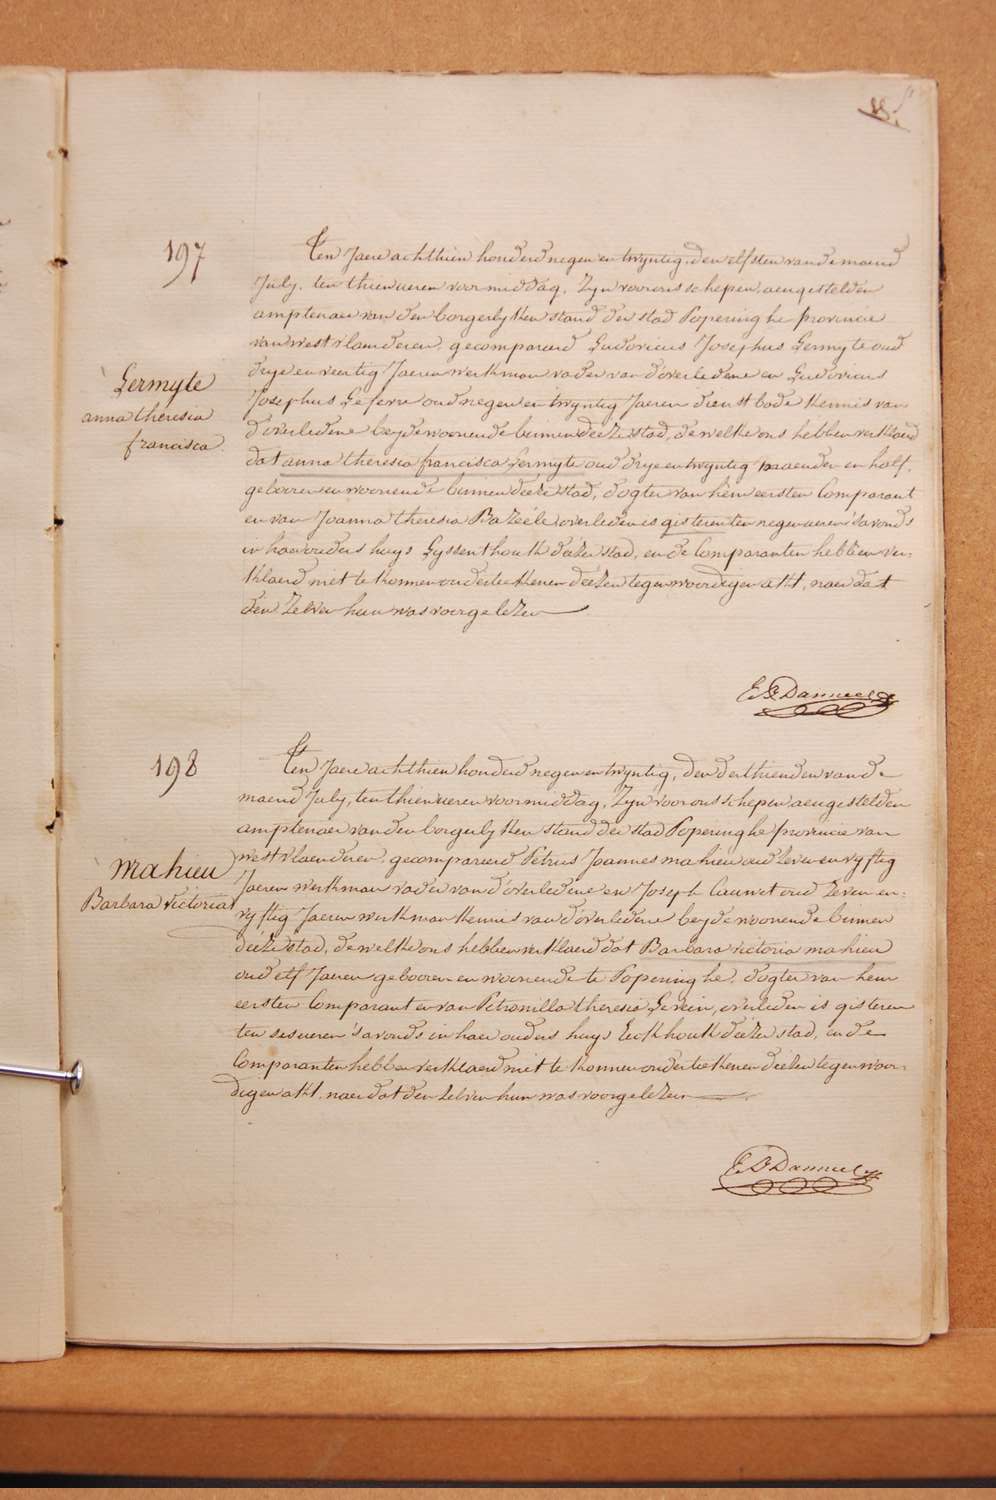 197
Ten Jaere achthien honderd negen en twyntig, den elfsten van de maend
July, ten thien ueren voormiddag, Zyn voor ons schepen, aengestelden
amptenaer van den borgerlyken stand der stad Poperinghe provincie
van westvlaenderen, gecompareerd Ludovicus Josephus Lermyte oud
drye en veertig Jaeren werkman vader van d'overledene en Ludovicus
Josephus Lefevre oud negen en twyntig Jaeren dienstbode kennis van
d'overledene beyde woonende binnen deeze stad, de welke ons hebben verklaerd
dat anna theresia francisca Lermyte oud drye en twyntig maenden en half,
gebooren en woonende binnen deeze stad, dogter van hem eersten Comparant
en van Joanna theresia Bazeele, overleden is gisteren ten negen ueren 's avonds
in haer ouders huys Lyssenthouk deezer stad, en de Comparanten hebben ver-
klaerd niet te konnen onderteekenen deezen tegenwoordigen akt, naer dat
den Zelven hun was voorgelezen
Lermyte
anna theresia
francisca
198
Ten Jaere achthien honderd negen en twyntig, den derthienden van de
maend July, ten thien ueren voormiddag, Zyn voor ons schepen aengestelden
amptenaer van den borgerlyken stand der stad Poperinghe provincie van
westvlaenderen, gecompareerd Petrus Joannes mahieu oud zeven en vyftig
Jaeren werkman vader van d'overledene en Joseph Cauwet oud Zeven en
vyftig Jaeren werkman kennis van d'overledene beyde woonende binnen
deeze stad, de welke ons hebben verklaerd dat Barbara victoria mahieu
oud elf Jaeren gebooren en woonende te Poperinghe, dogter van hem
eersten Comparant en van Petronilla theresia Gerein, overleden is gisteren
ten ses ueren 's avonds in haer ouders huys Eekhoutk deezer stad, en de
Comparanten hebben verklaerd niet te konnen onderteekenen deezen tegenwoor-
digen akt, naer dat den Zelven hun was voorgelezen
mahieu
Barbara victoria